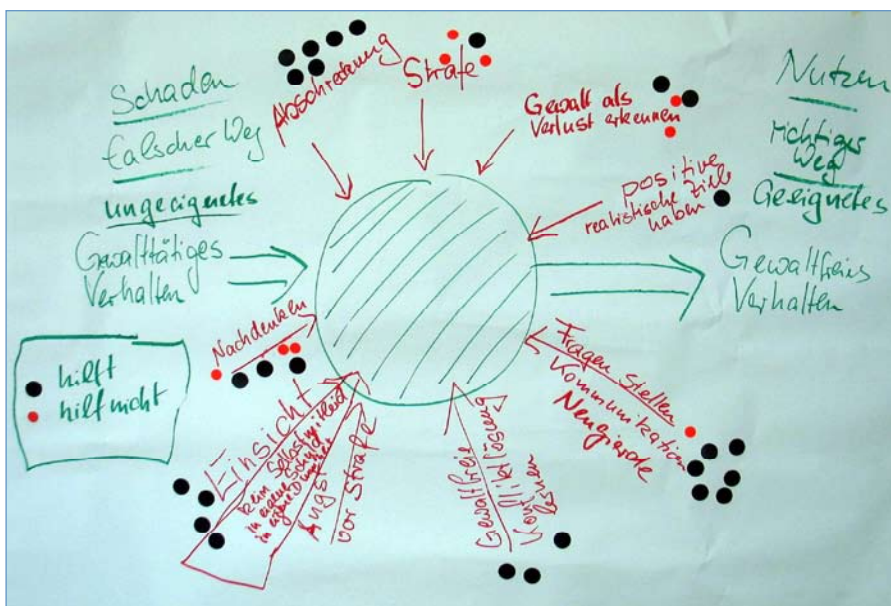 Schaden
falscher Weg
ungeeignetes
Gewalttätiges
Verhalten
Abschreckung
Strafe
Gewalt als
Verlust erkennen
positive
realistische Ziele
haben
Nutzen
richtiger
Weg
Geeignetes
Gewaltfreies
Verhalten
Nachdenken
hilft
hilf nicht
Einsicht
kein Selbstmitleid
in eigene Schuld
in eigene Dummheit
Angst
vor Strafe
Gewaltfreie
Konfliktlösung
lernen
Fragen stellen
Kommunikation
Neugierde